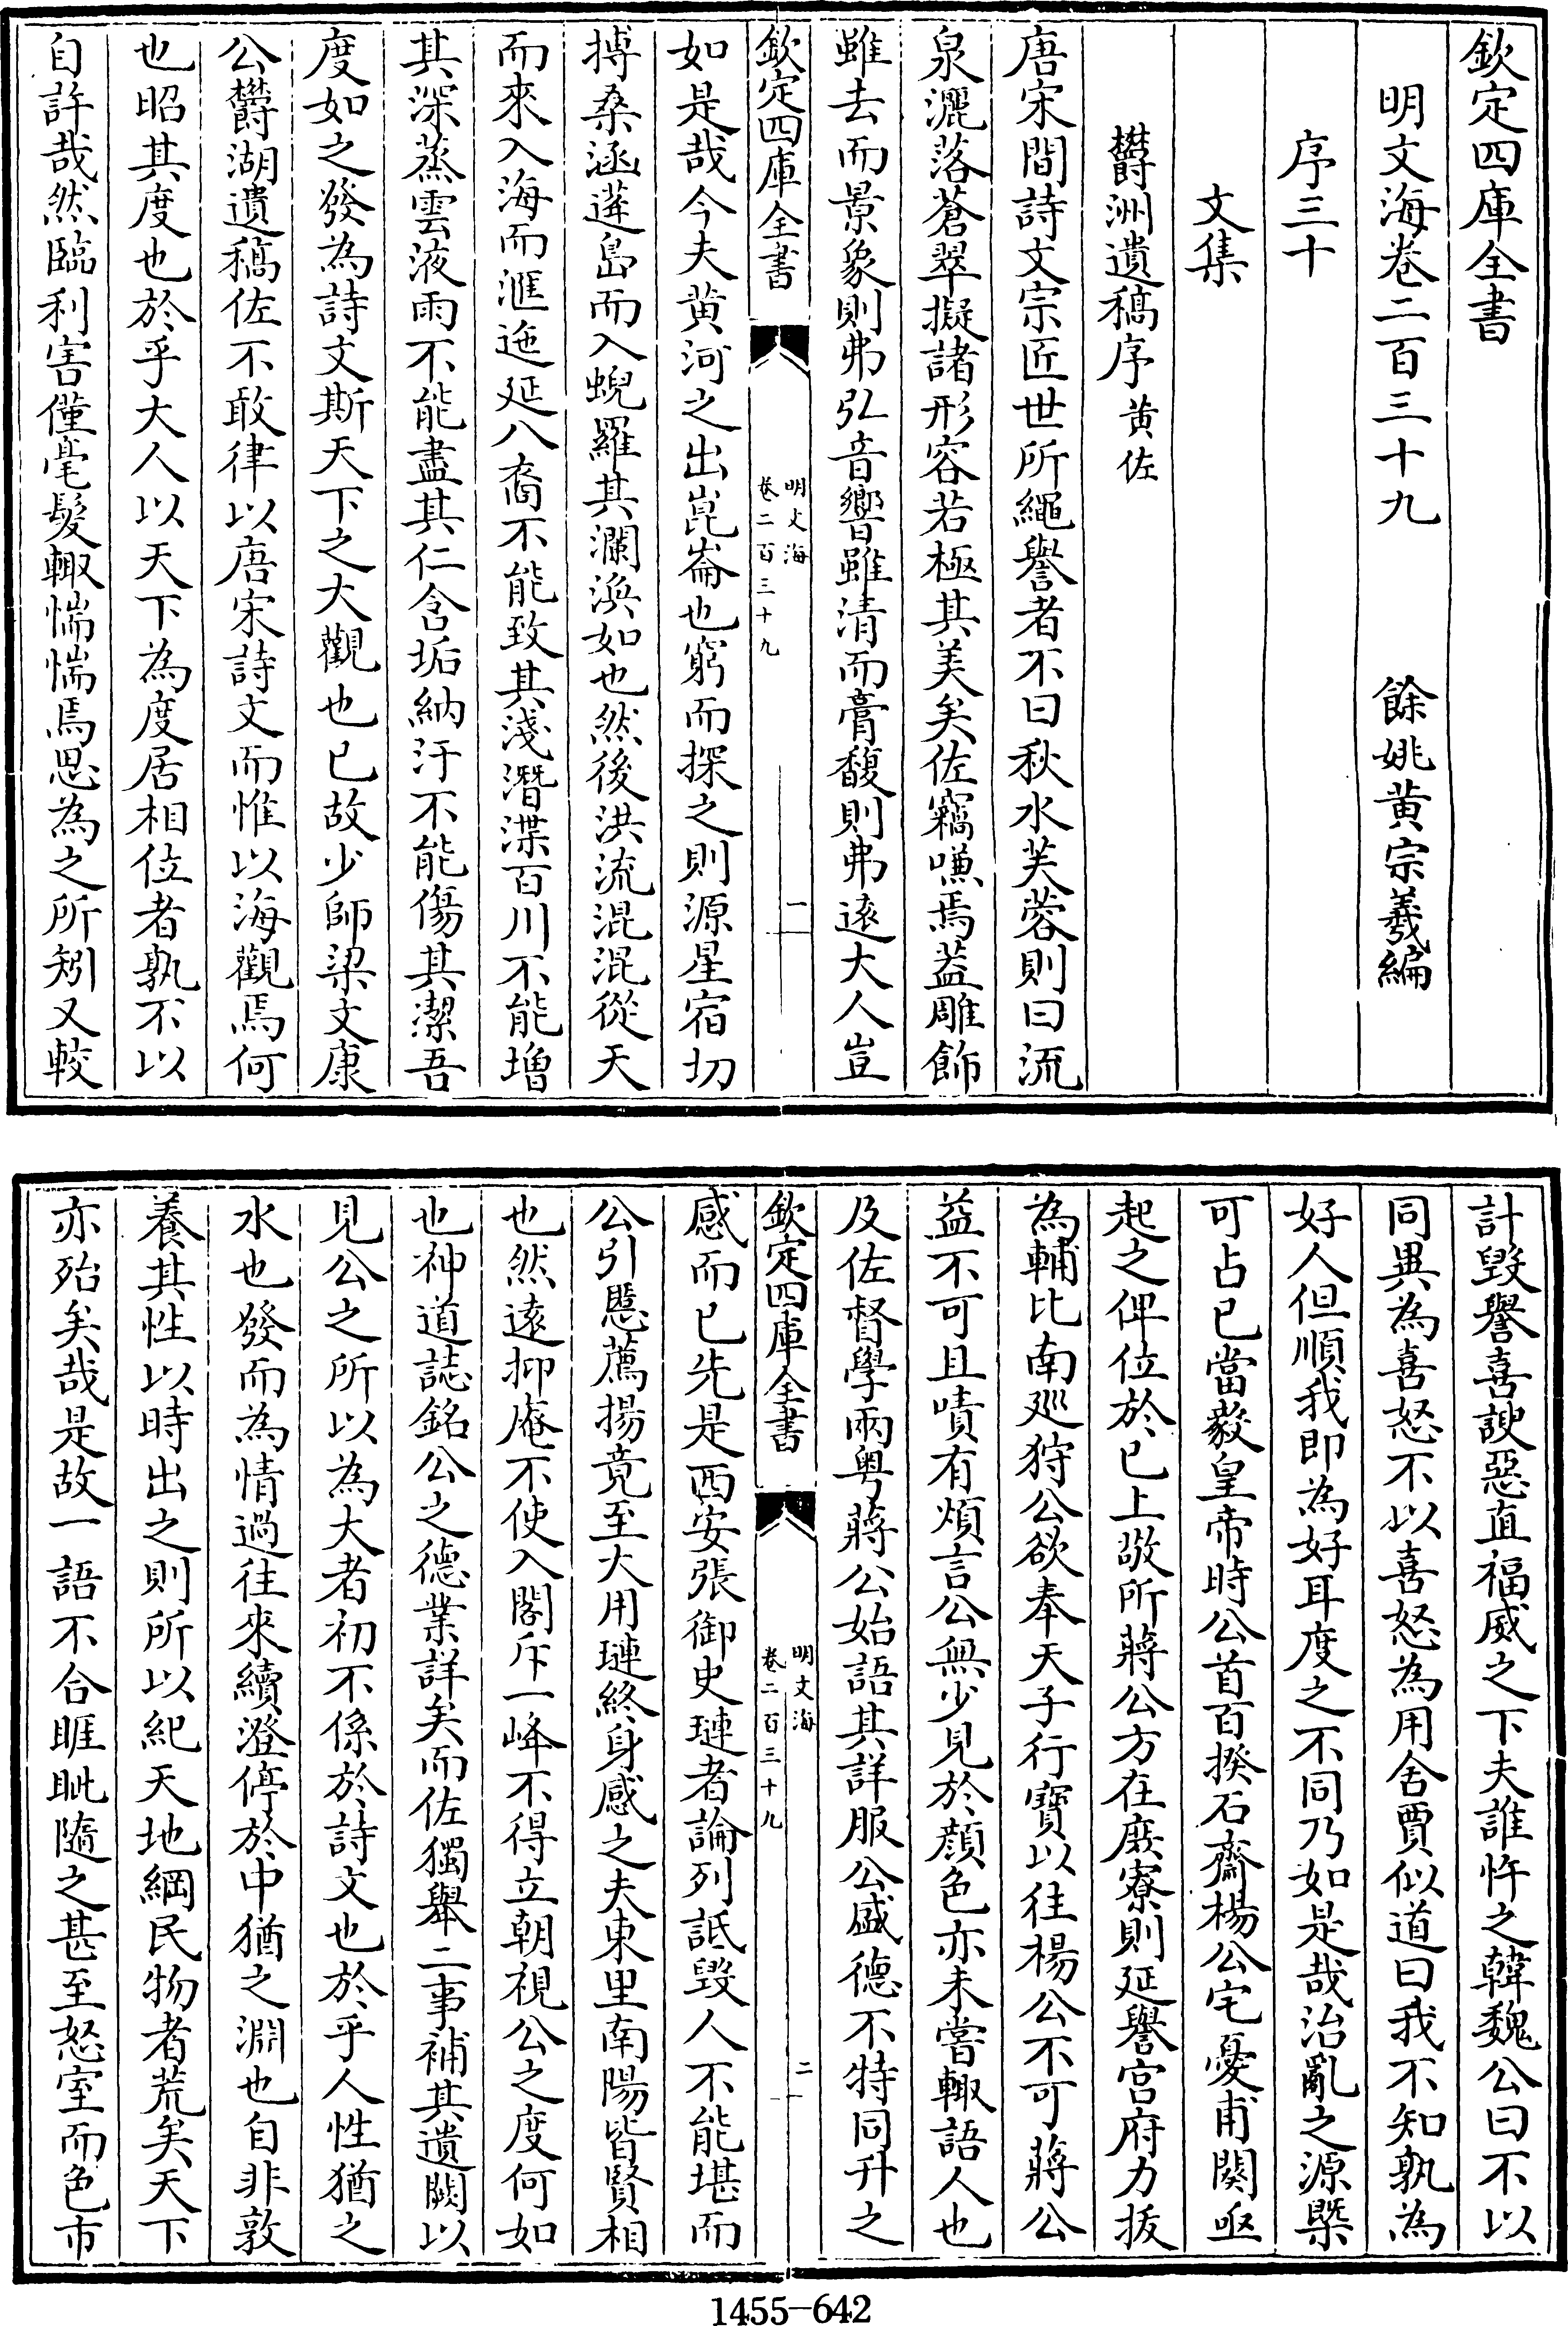 欽定四庫全書
明文海卷二百三十九　餘姚黄宗羲編
序三十
文集
欝洲遺稿序 黄佐
唐宋間詩文宗匠世所繩譽者不曰秋水芙蓉則曰流
泉灑落蒼翠擬諸形容若極其美矣佐竊嗛焉葢雕飾
雖去而景象則弗弘音響雖清而膏馥則弗遠大人豈
欽定四庫全書
明文海
卷二百三十九
一
如是哉今夫黄河之出崑崙也窮而探之則源星宿切
搏桑涵蓬島而入蜺羅其瀾渙如也然後洪流混混從天
而來入海而滙迤延八裔不能致其淺潛渫百川不能增
其深蒸雲液雨不能盡其仁含垢納汙不能傷其潔吾
度如之發為詩文斯天下之大觀也已故少師梁文康
公欝湖遺稿佐不敢律以唐宋詩文而惟以海觀焉何
也昭其度也於乎大人以天下為度居相位者孰不以
自許哉然臨利害僅毫髮輙惴惴焉思為之所矧又較
計毁譽喜諛惡直福威之下夫誰忤之韓魏公曰不以
同異為喜怒不以喜怒為用舍賈似道曰我不知孰為
好人但順我即為好耳度之不同乃如是哉治亂之源槩
可占已當毅皇帝時公首百揆石齋楊公宅憂甫闋亟
起之俾位於已上敬所蔣公方在庶寮則延譽宫府力拔
為輔比南廵狩公欲奉天子行寶以往楊公不可蔣公
益不可且嘖有煩言公無少見於顔色亦未嘗輙語人也
及佐督學兩粤蔣公始語其詳服公盛德不特同升之
欽定四庫全書
明文海
卷二百三十九
二
感而已先是西安張御史璉者論列詆毁人不能堪而
公引慝薦揚竟至大用璉終身感之夫東里南陽皆賢相
也然遠抑庵不使入閣斥一峰不得立朝視公之度何如
也神道誌銘公之德業詳矣而佐獨舉二事補其遺闕以
見公之所以為大者初不係於詩文也於乎人性猶之
水也發而為情過往來續澄停於中猶之淵也自非敦
養其性以時出之則所以紀天地綱民物者荒矣天下
亦殆矣哉是故一語不合睚眦隨之甚至怒室而色市
1455—642